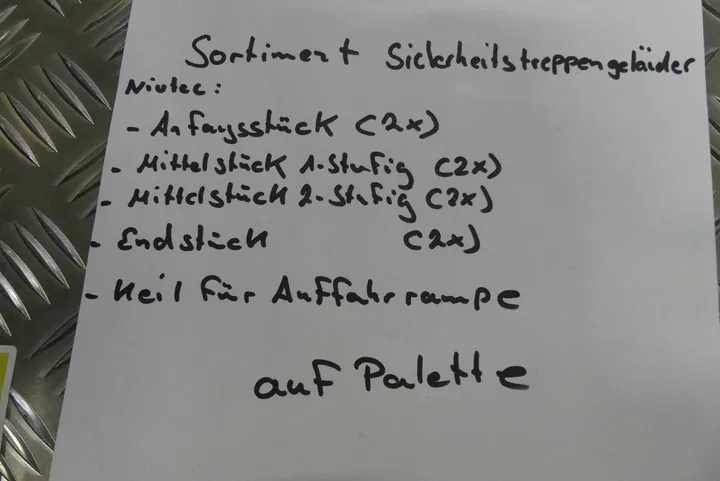 Sortiment Sicherheitstreppengeländer
Nivtec:
- Anfangsstück (2x)
- Mittelstück 1-Stufig (2x)
- Mittelstück 2-Stufig (2x)
- Endstück (2x)
- Keil für Auffahrrampe
auf Palette